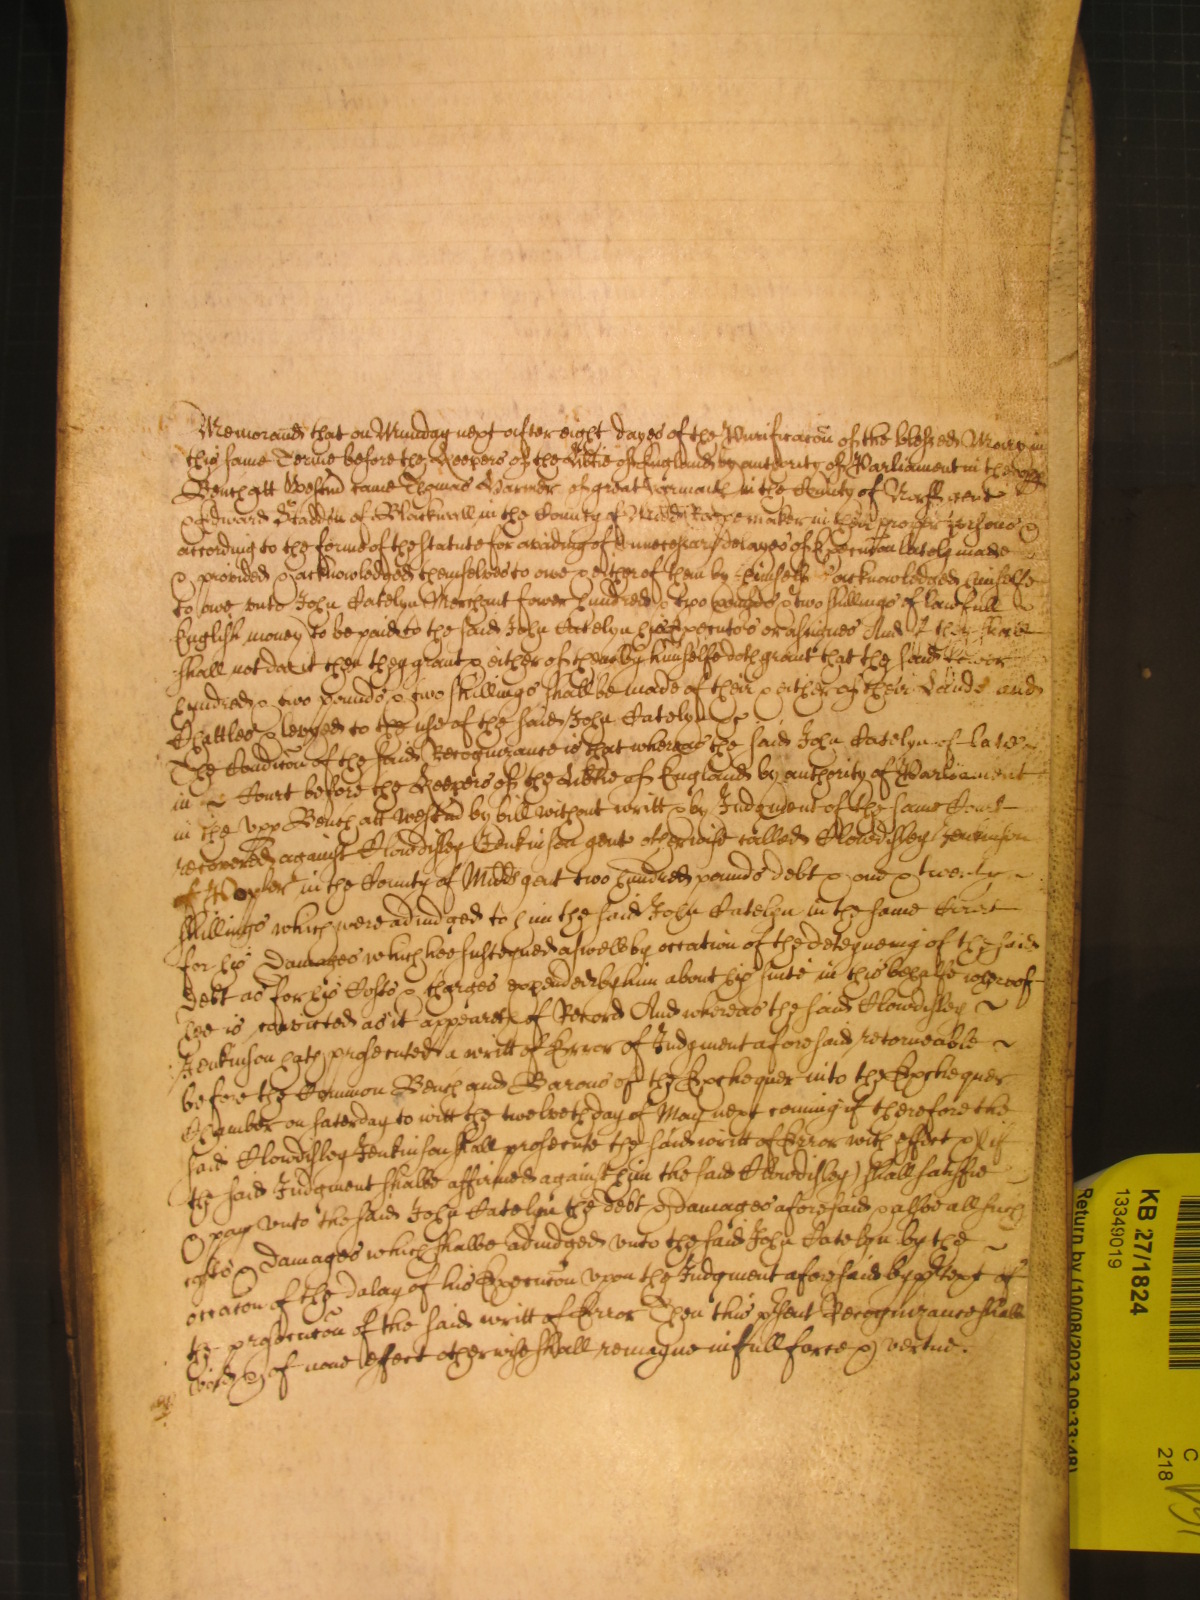 Memorand that on Munday next after eight dayes of the Purificacon of the blessed Mary in
this same Terme before the Keepers of the Libtie of England by authority of Parliament in the upp
Bench att Westmr came Thomas Warner of great Yarmouth in the County of Norff gent
& Edward Gladdin of Blackwall in the County of Midd Ropemaker in their proper persons &
according to the forme of the Statute for avoiding of unnecessary delayes of Execution lately made
& provided & acknowledged themselves to owe & either of them by himself acknowledged himselfe
to owe unto John Catelyn Merchant fower hundred & two pounds & two shillings of lawfull
English money to be paid to the said John Catelyn his Executors or assignes And if they
shall not doe it then they grant & either of them by himselfe doth grant that the said fower
hundred & two pounds & two shillings shall be made of their & either of their Lands and
Chattles & levyed to the use of the said John Catelyn
The Condicon of the said Recognizance is that whereas the said John Catelyn of late
in Court before the Keepers of the Libtie of England by authority of Parliament
in the upp Bench att Westmr by bill without writt & by Judgment of the same Court
recovered against Clowdisley Jenkinson gent otherwise called Clowdisley Jenkinson
of in the County of Midd gent two hundred pounds debt & one & twenty
shillings which were adjudged to him the said John Catelyn in the same Court
for his Damages which hee susteyned aswell by occation of the deteyneing of the said
debt as for his Costs & charges expended by him about his suite in this behalfe whereof
hee is convicted as it appeareth of Record And whereas the said Clowdisley
Jenkinson hath prosecuted a writt of Error of Judgment aforesaid retorneable
before the Common Bench and Barons of the Exchequer into the Exchequer
Chamber on saterday to witt the twelveth day of May next coming if therefore the
said Clowdisley Jenkinson shall prosecute the said writt of Error with effect & (if
the said Judgment shalbe affirmed against him the said Clowdisley) shall satisfie
& pay unto the said John Catelyn the debt & damages aforesaid & alsoe all such
costs & damages which shalbe adjudged unto the said John Catelyn by the
occacon of the delay of his Execucon upon the Judgment aforesaid by ptext of
the prosecucon of the said writt of Error Then this psent Recognizance shalbe
void & of none effect otherwise shall remayne in full force & vertue.
KB 27/1824
13349019
Return by (10/08/2023 09:33:48)
C
218